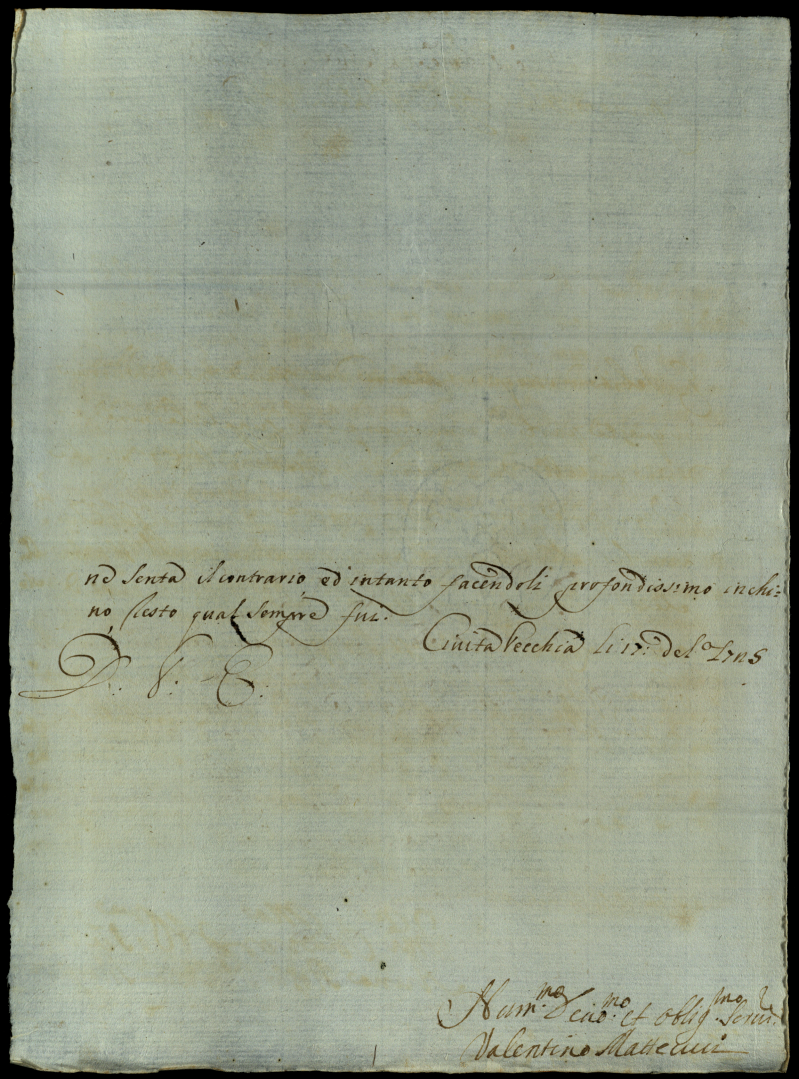 ne senta il contrario ed intanto facendoli profondissimo inchi=
no, resto qual sempre fui.
Civita Vecchia li 17:
D. V. E.
Hum.mo Deuo.mo et oblig.mo Seru.re
Valentino Matteucci